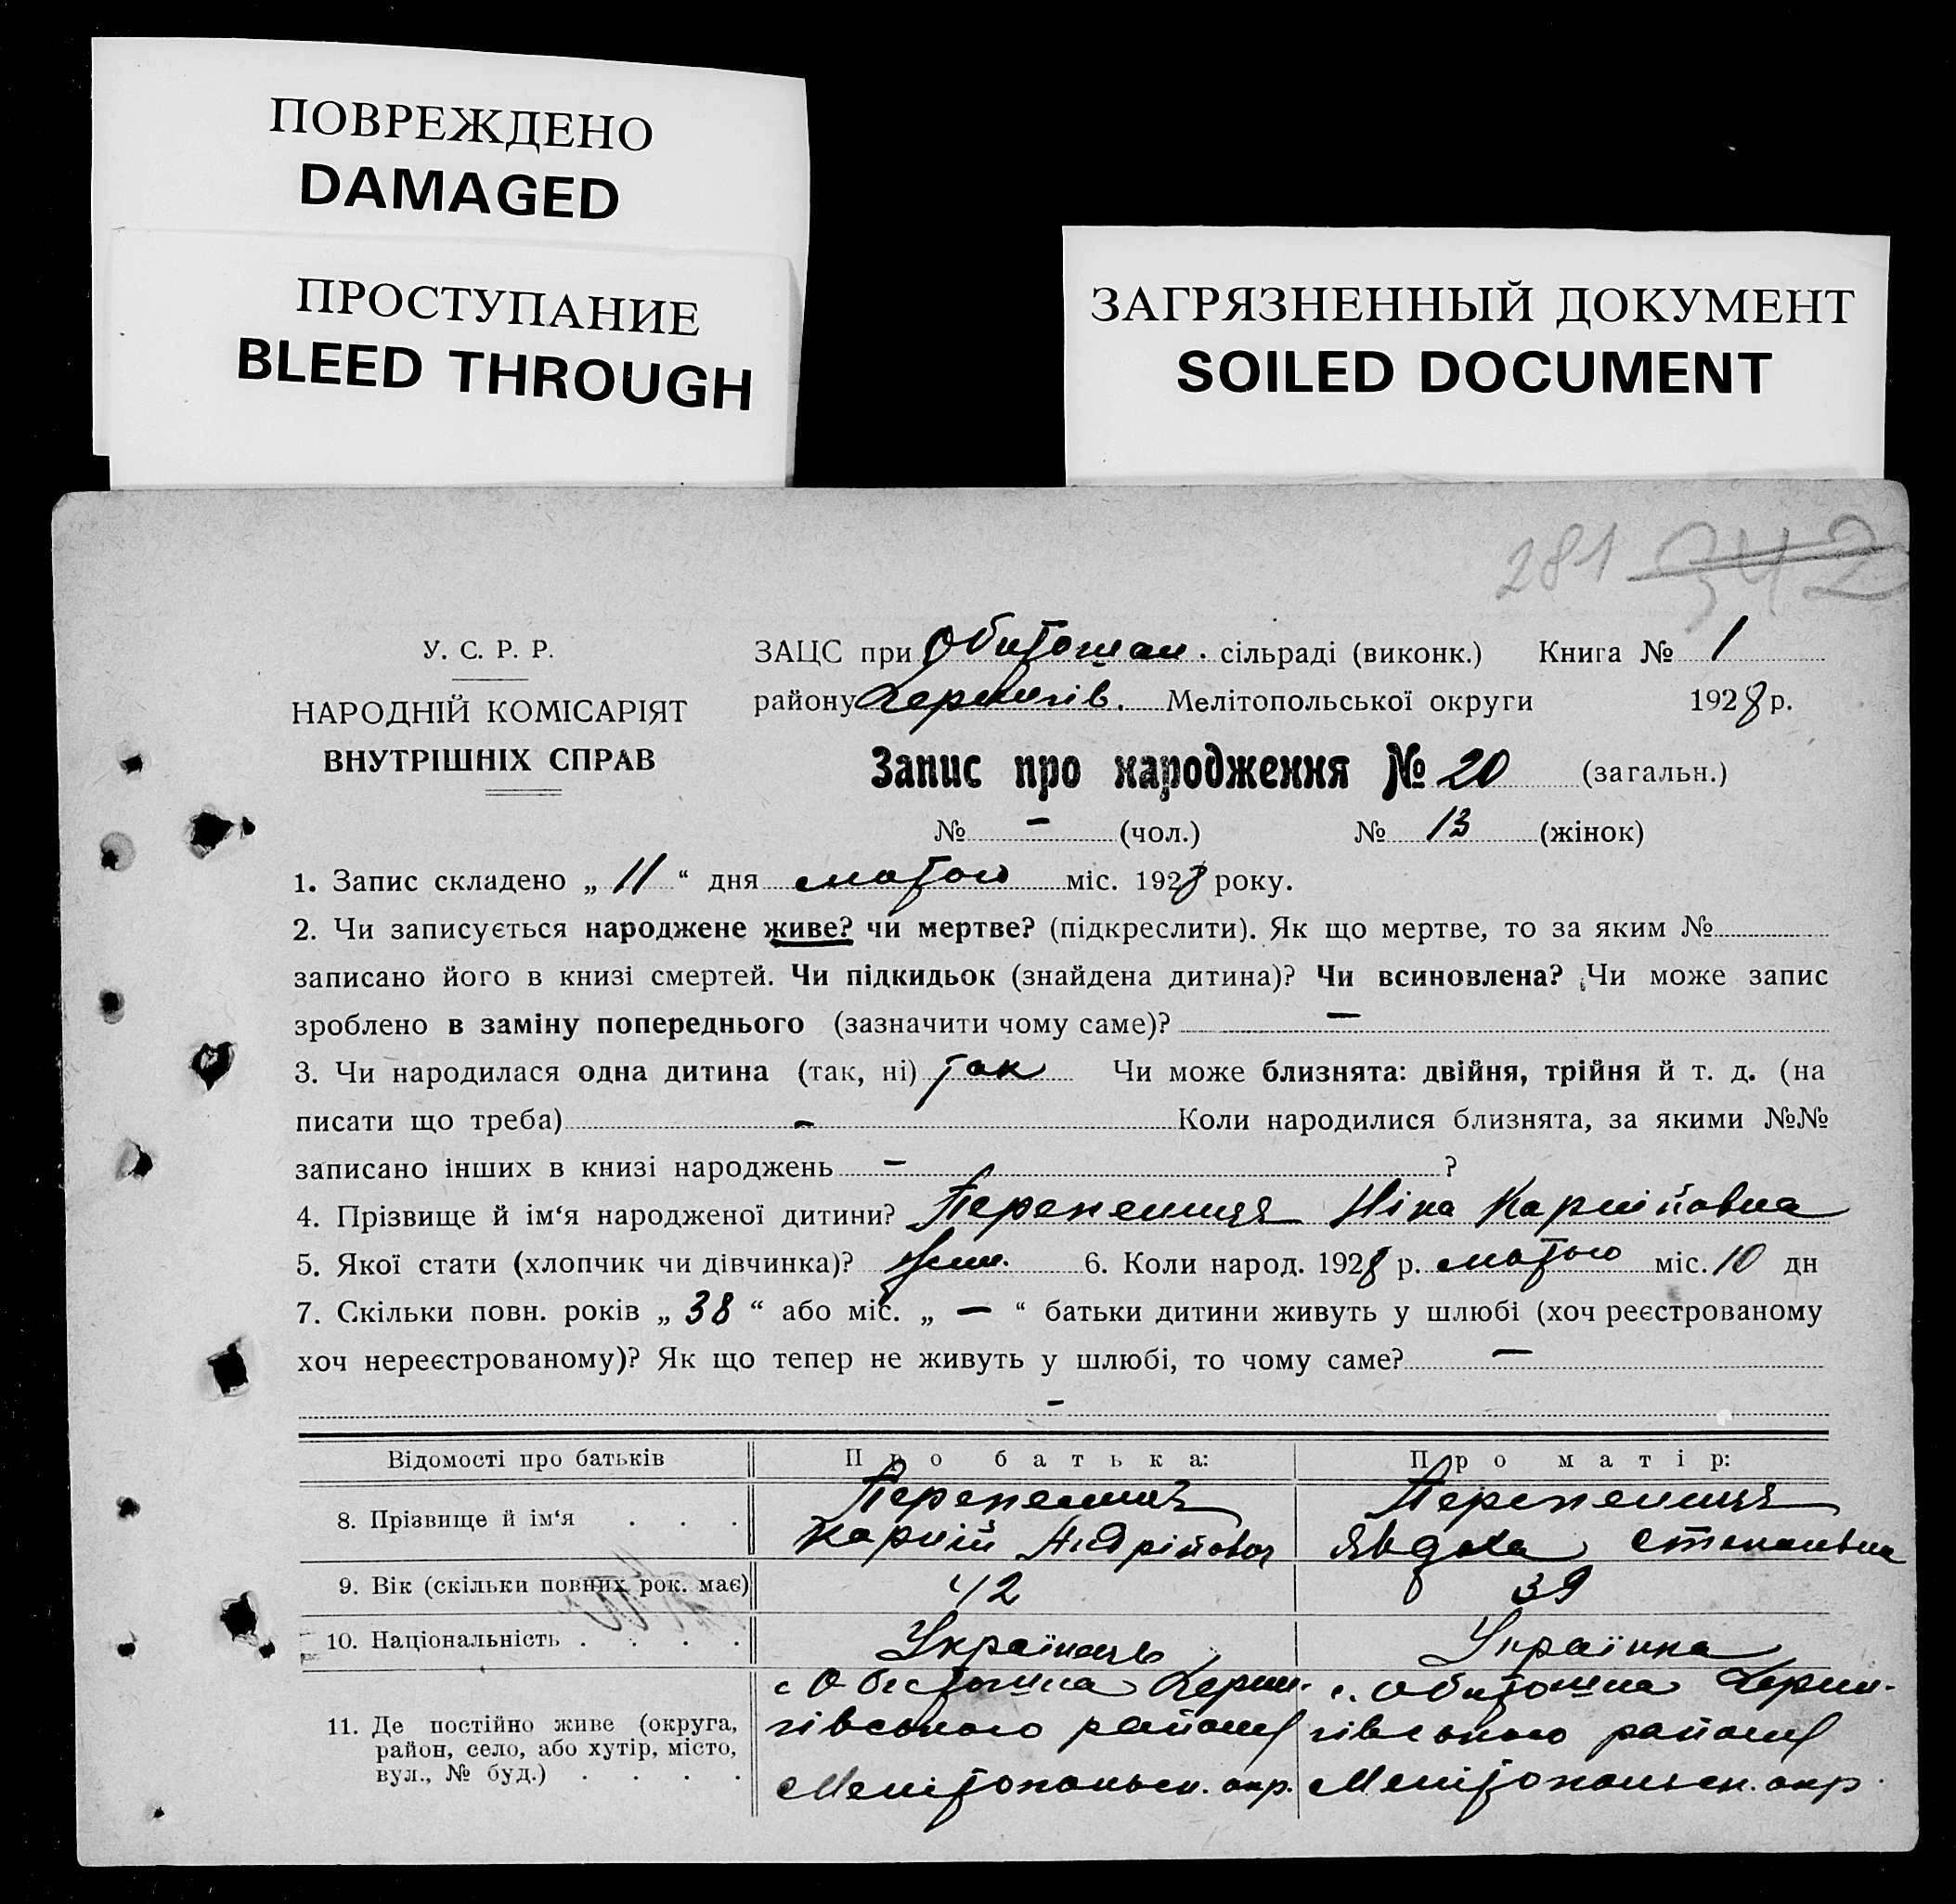 ПОВРЕЖДЕНО
DAMAGED
ПРОСТУПАНИЕ
BLEED THROUGH
ЗАГРЯЗНЕННЫЙ ДОКУМЕНТ
SOILED DOCUMENT
281 342
У. С. Р. Р.
НАРОДНІЙ КОМІСАРІЯТ
ВНУТРІШНІХ СПРАВ
ЗАЦС при Обиточан. сільраді (виконк.) Книга № 1
району Чернигів. Мелітопольської округи 1928 р.
Запис про народження № 20 (загальн.)
№ – (чол.) № 13 (жінок)
1. Запис складено „ 11 “ дня лютого міс. 1928 року.
2. Чи записується народжене живе? чи мертве? (підкреслити). Як що мертве, то за яким №
записано його в книзі смертей. Чи підкидьок (знайдена дитина)? Чи всиновлена? Чи може запис
зроблено в заміну попереднього (зазначити чому саме)? —
3. Чи народилася одна дитина (так, ні) так Чи може близнята: двійня, трійня й т. д. (на
писати що треба) – Коли народилися близнята, за якими №№
записано інших в книзі народжень – ?
4. Прізвище й ім‘я народженої дитини? Перепелиця Ніна Карпійовна
5. Якої стати (хлопчик чи дівчинка)? Жен. 6. Коли народ. 1928 р. лютого міс. 10 дн
7. Скільки повн. років „ 38 “ або міс. „ — “ батьки дитини живуть у шлюбі (хоч реєстрованому
хоч нереєстрованому)? Як що тепер не живуть у шлюбі, то чому саме? —
–
Відомості про батьків Про батька: Про матір:
8. Прізвище й ім‘я . . . Перепелиця Перепелиця
Карпій Андрійович Явдоха Степановна
9. Вік (скільки повних рок. має) 42 39
10. Національність . . . . Українець Українка
с Обиточна Черни- с. Обиточна Черни-
11. Де постійно живе (округа, гівського району гівського району
район, село, або хутір, місто,
вул., № буд.) . . . . Мелітопольск. окр. Мелітопольск. окр.